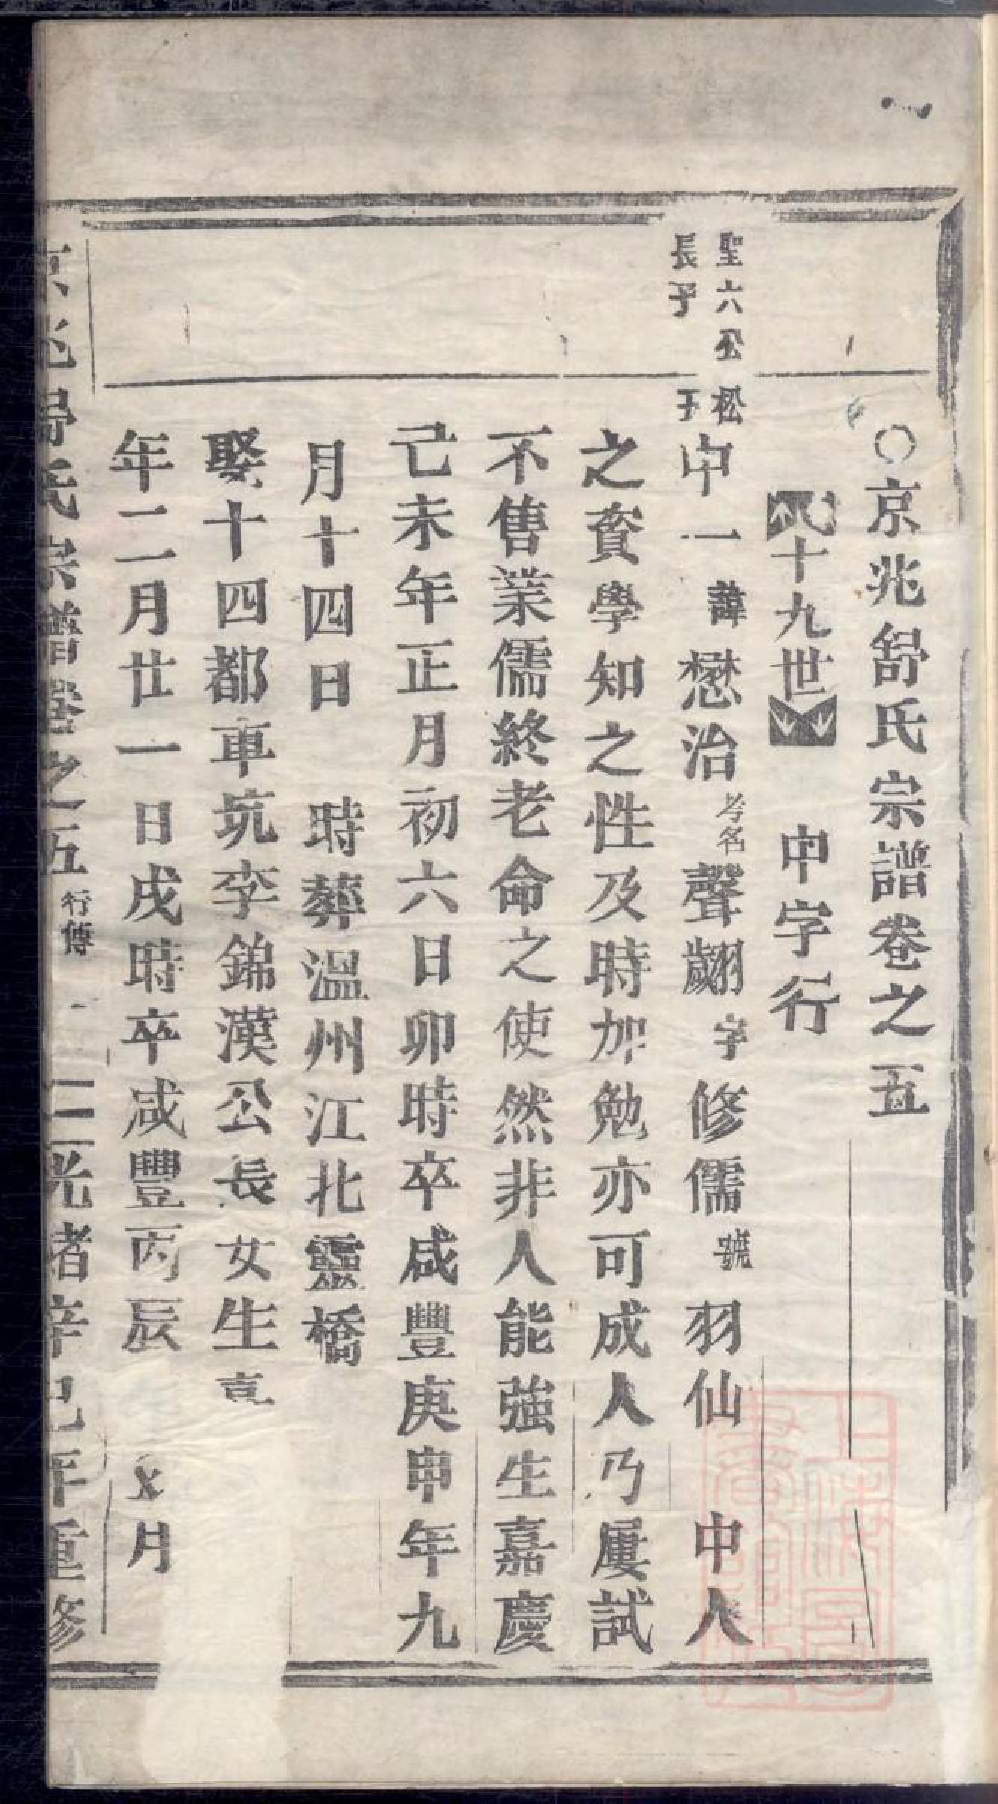 ○京兆舒氏宗譜卷之五
十九世 中字行
聖六公松
長子 子
中一諱懋治考名聲翽字修儒號羽仙 中人
之資學知之性及時加勉亦可成人乃屢試
不售業儒終老命之使然非人能強生嘉慶
己未年正月初六日卯時卒咸豐庚申年九
月十四日 時葬溫州江北靈橋
娶十四都車坑李錦漢公長女生嘉
年二月廿一日戌時卒咸豐丙辰 月
京兆舒氏宗譜卷之五 行傳 一 光緒辛巳年重修